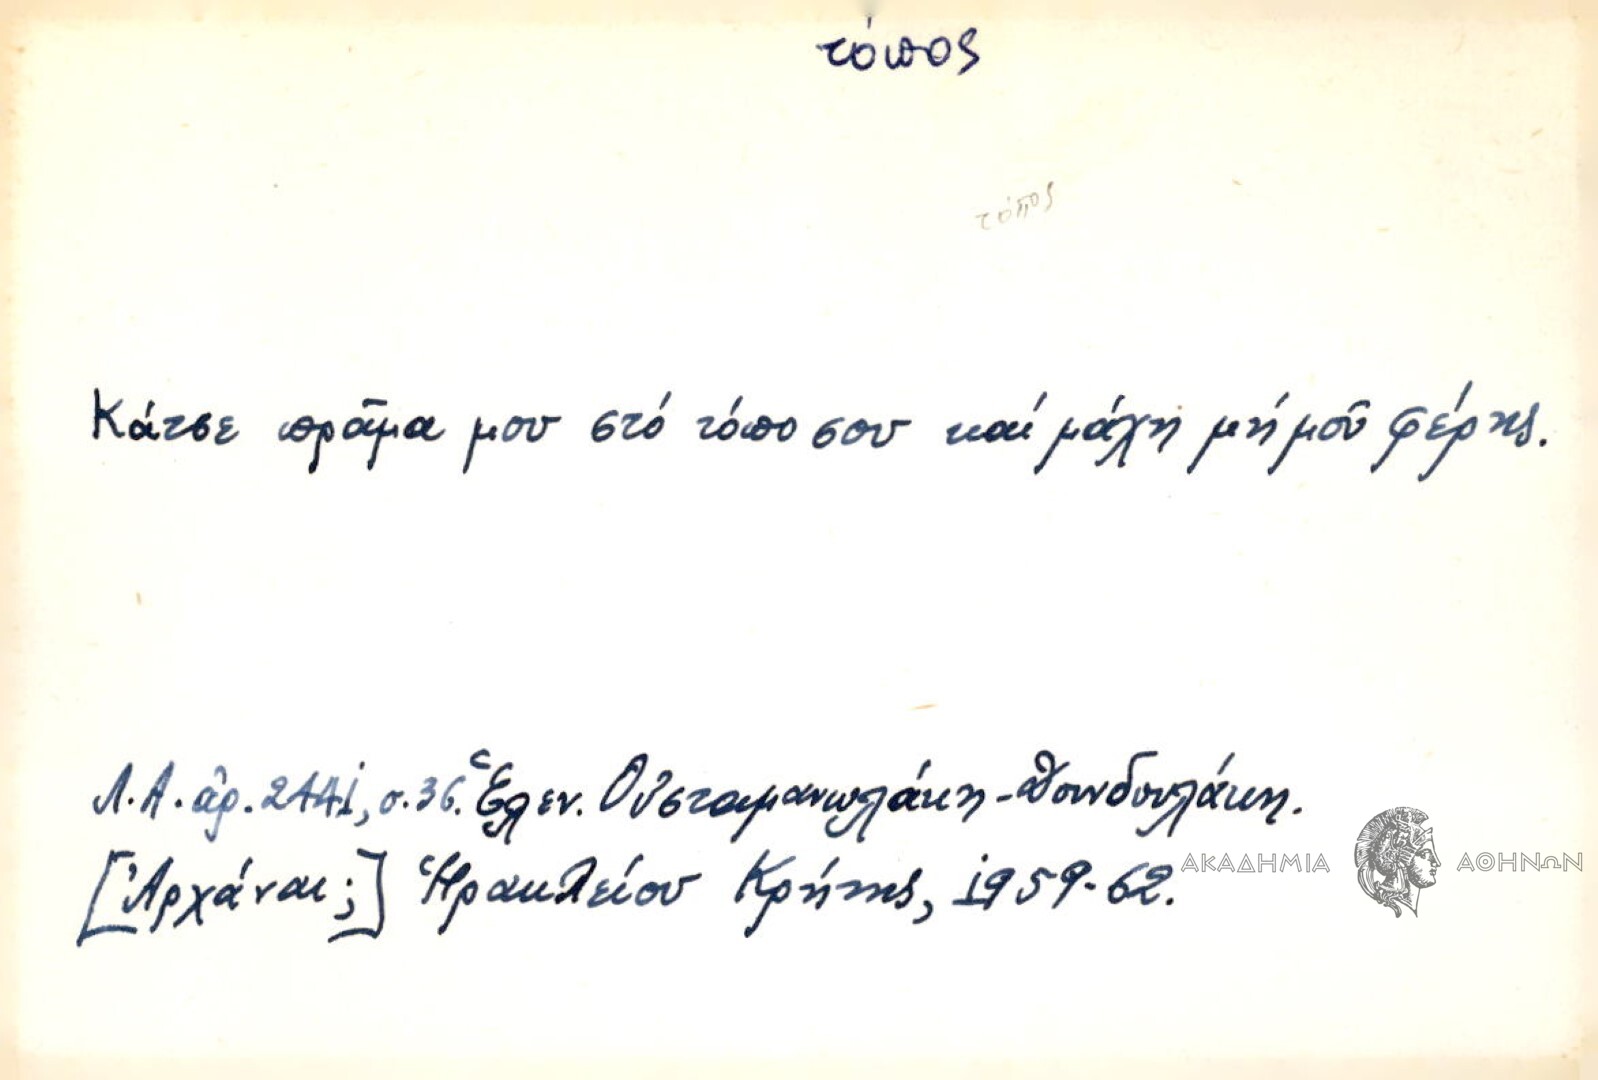 τόπος
τόπος
Κάτσε πρᾶμα μου στό τόπο σου καί μάχη μή μοῦ φέρης.
Λ.Α. ἀρ. 2441, σ. 36. Ἑλεν. Οὐσταμανωλάκη -
[Ἀρχάναι;] Ἡρακλείου Κρήτης, 1959-62.
ΑΚΑΔΗΜΙΑ ΑΘΗΝΩΝ